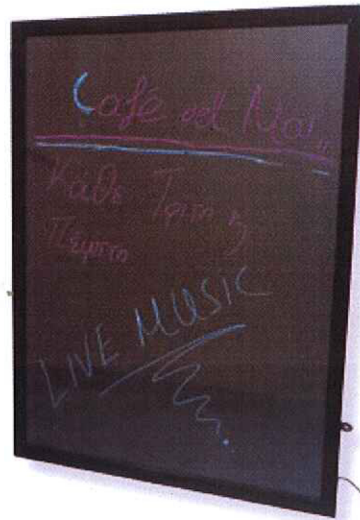 Café del Mar
Κάθε Τρίτη &
Πέμπτη
LIVE MUSIC